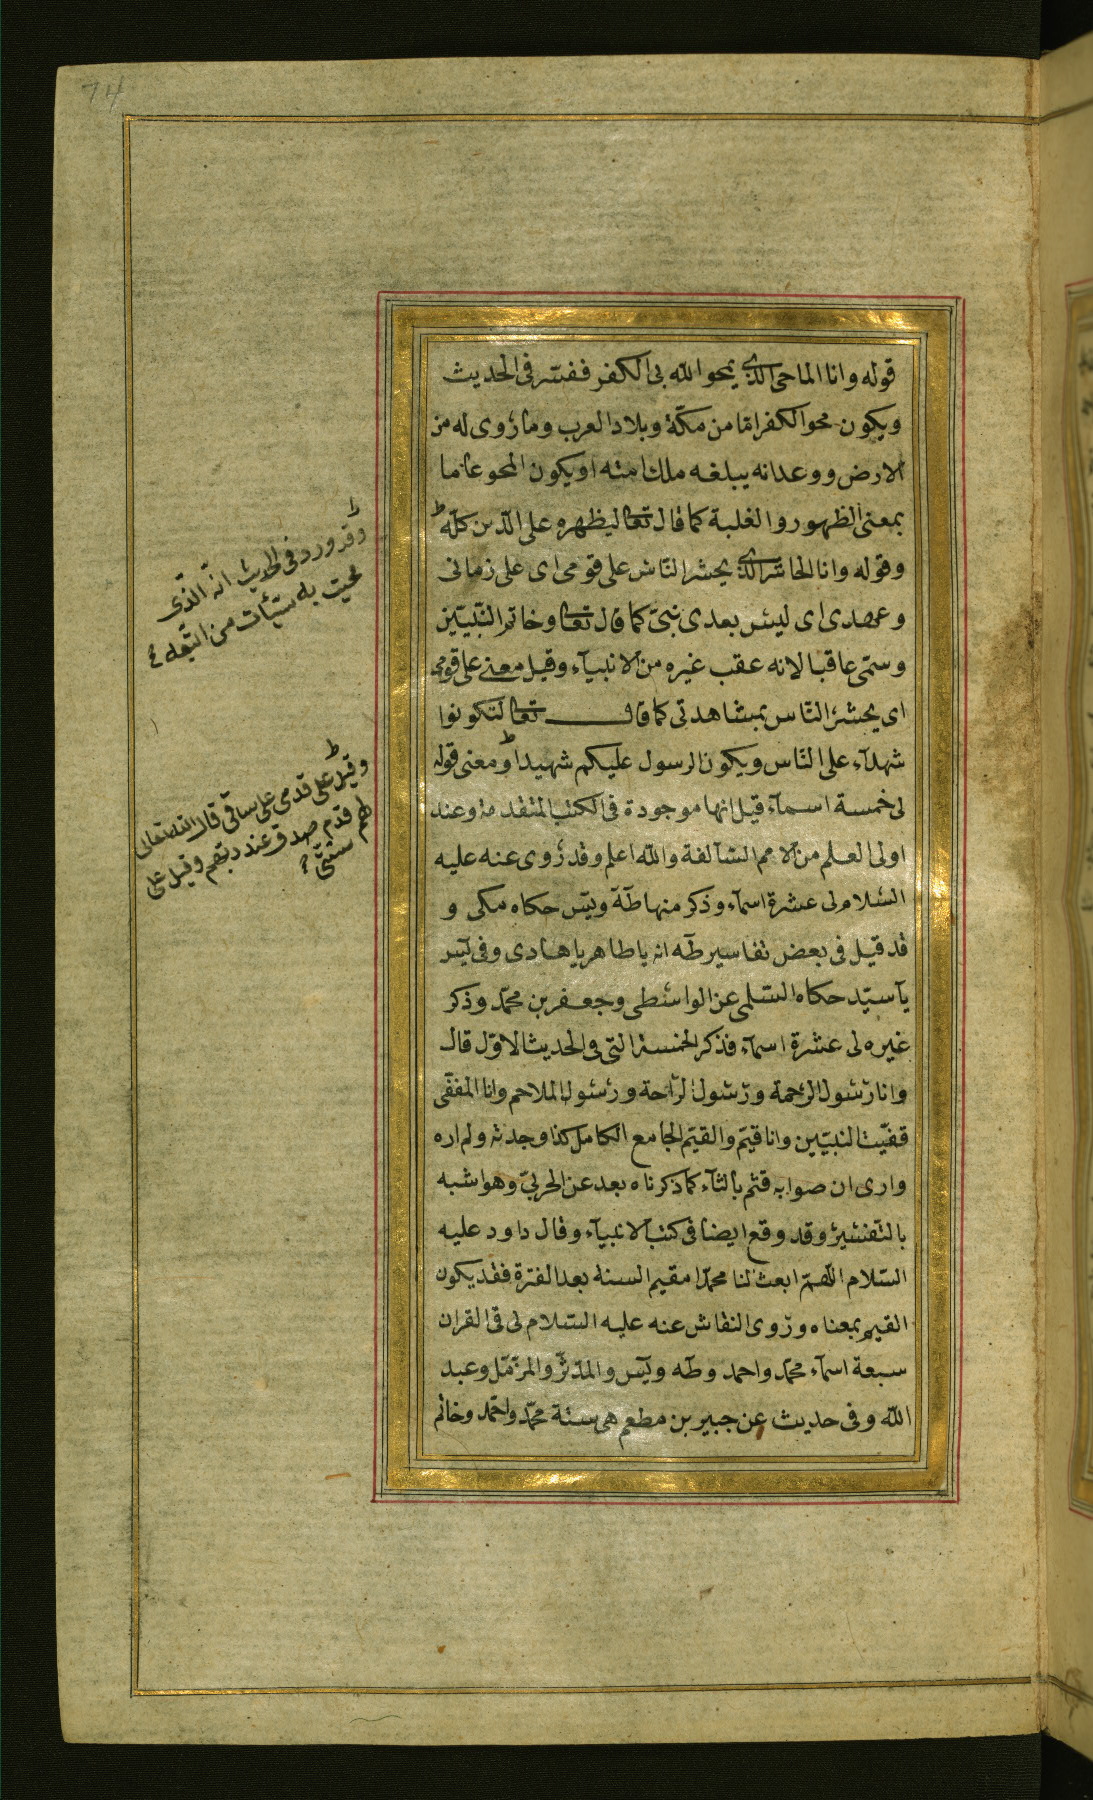 74
قوله وانا الماحى الذى يمحو الله بى الكفر ففسّر فى الحديث
ويكون محو الكفر امّا من مكّة وبلاد العرب وما زوى له من
الارض ووعد انه يبلغه ملك امته او يكون المحو عامّا
بمعنى الظهور والغلبة كما قال تعالى ليظهره على الدّين كلّه
وقوله وانا الحاشر الذى يحشر النّاس على قومى اى على زمانى
وعهدى اى ليس بعدى نبىّ كما قال تعالى وخاتم النّبيّين
وسمّى عاقبا لانه عقب غيره من الانبيآء وقيل معنى على قومى
اى يحشر النّاس بمشاهدتى كما قال تعالى لتكونوا
شهدآء على النّاس ويكون الرسول عليكم شهيدا ومعنى قوله
لى خمسة اسمآء قيل انها موجودة فى الكتب المتقدمة وعند
اولى العلم من الامم السّالفة والله اعلم وقد روى عنه عليه
السّلام لى عشرة اسمآء وذكر منها طٓه ويسٓ حكاه مكى و
قد قيل فى بعض تفاسير طٓه انه ياطاهر ياهادى وفى يسٓ
يآ سيّد حكاه السّلمى عن الواسطى وجعفر بن محمّد وذكر
غيره لى عشرة اسمآء فذكر الخمسة التى فى الحديث الاوّل قال
وانا رسول الرحمة ورسول الرّاحة ورسول الملاحم وانا المقفّى
قفيّت النبيّين وانا قيّم والقيّم الجامع الكامل كذا وجدته ولم اره
وارى ان صوابه قثم بالثآء كما ذكرناه بعد عن الحربىّ وهو اشبه
بالتفسير وقد وقع ايضا فى كتب الانبيآء وقال داود عليه
السّلام اللّهمّ ابعث لنا محمّدا مقيم السنة بعد الفترة فقد يكون
القيم بمعناه وروى النقاش عنه عليه السّلام لى فى القران
سبعة اسمآء محمّد واحمد وطٓه ويسٓ والمدّثّر والمزّمّل وعبد
الله وفى حديث عن جبير بن مطعم هى ستة محمّد واحمد وخاتم
وقد ورد فى الحديث انّه الّذى
محيت به سيّئات من اتّبعه
وقيل على قدمى على سابقى قال الله تعالى
لهم قدم صدق عند ربّهم وقيل على
سنّتى